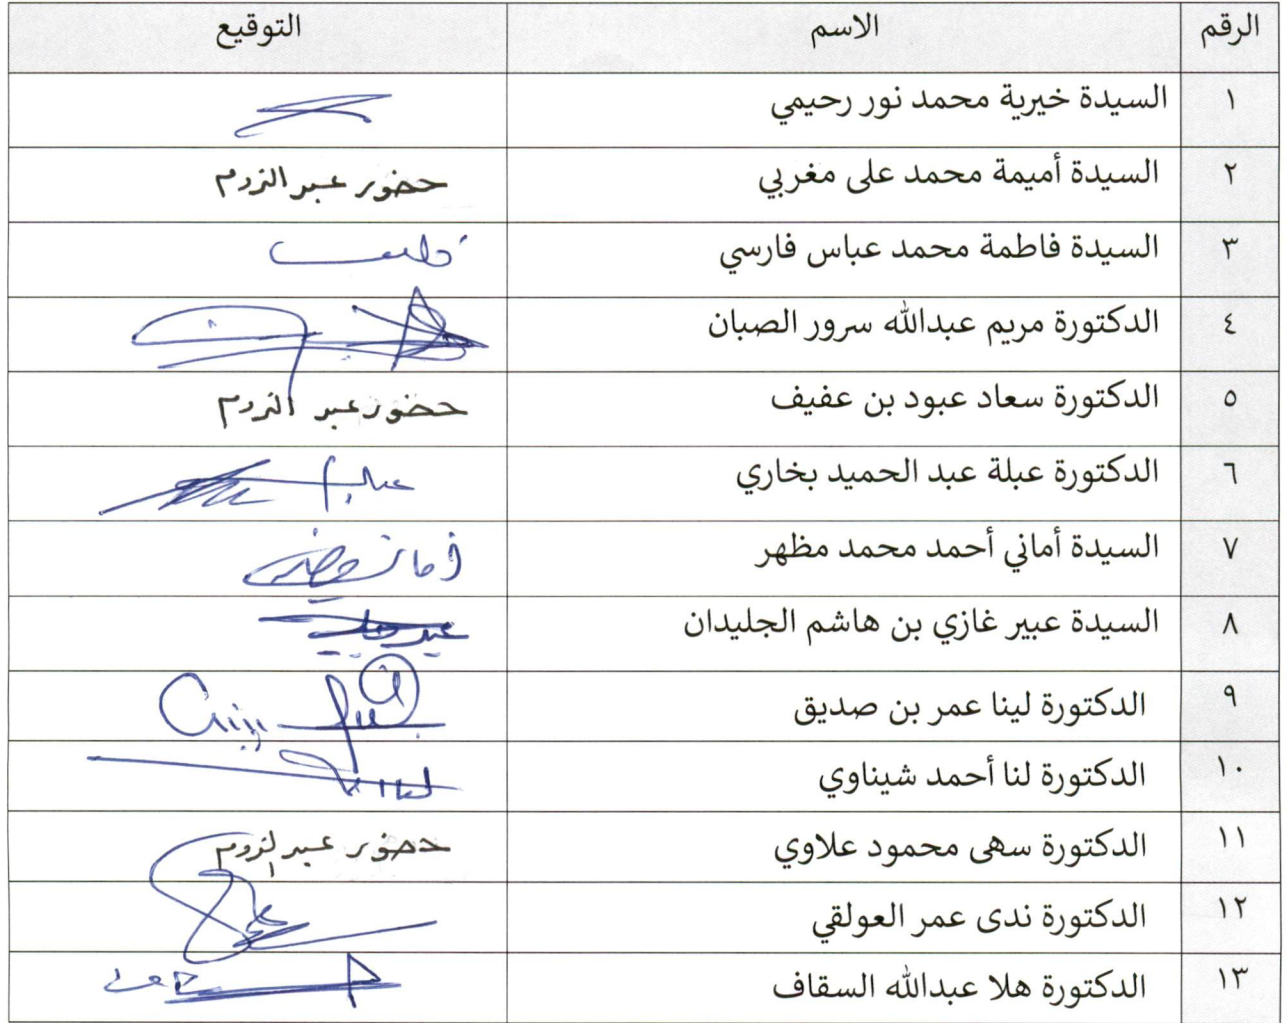 الرقم الاسم التوقيع
١ السيدة خيرية محمد نور رحيمي
٢ السيدة أميمة محمد على مغربي حضور عبر الزووم
٣ السيدة فاطمة محمد عباس فارسي
٤ الدكتورة مريم عبدالله سرور الصبان
٥ الدكتورة سعاد عبود بن عفيف حضور عبر الزووم
٦ الدكتورة عبلة عبد الحميد بخاري
٧ السيدة أماني أحمد محمد مظهر
٨ السيدة عبير غازي بن هاشم الجليدان
٩ الدكتورة لينا عمر بن صديق
١٠ الدكتورة لنا أحمد شيناوي
١١ الدكتورة سهى محمود علاوي حضور عبر الزووم
١٢ الدكتورة ندى عمر العولقي
١٣ الدكتورة هلا عبدالله السقاف